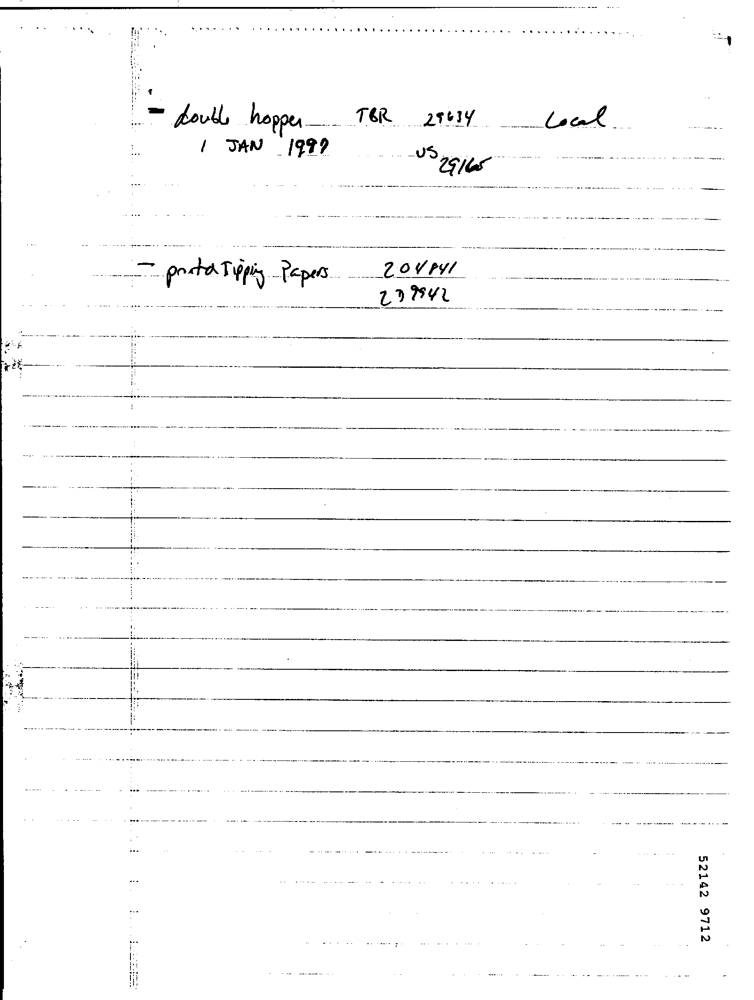 - double hopper TBR 29634 Local
1 JAN 1999 US 29165
- printed Tipping Papers
52142 9712